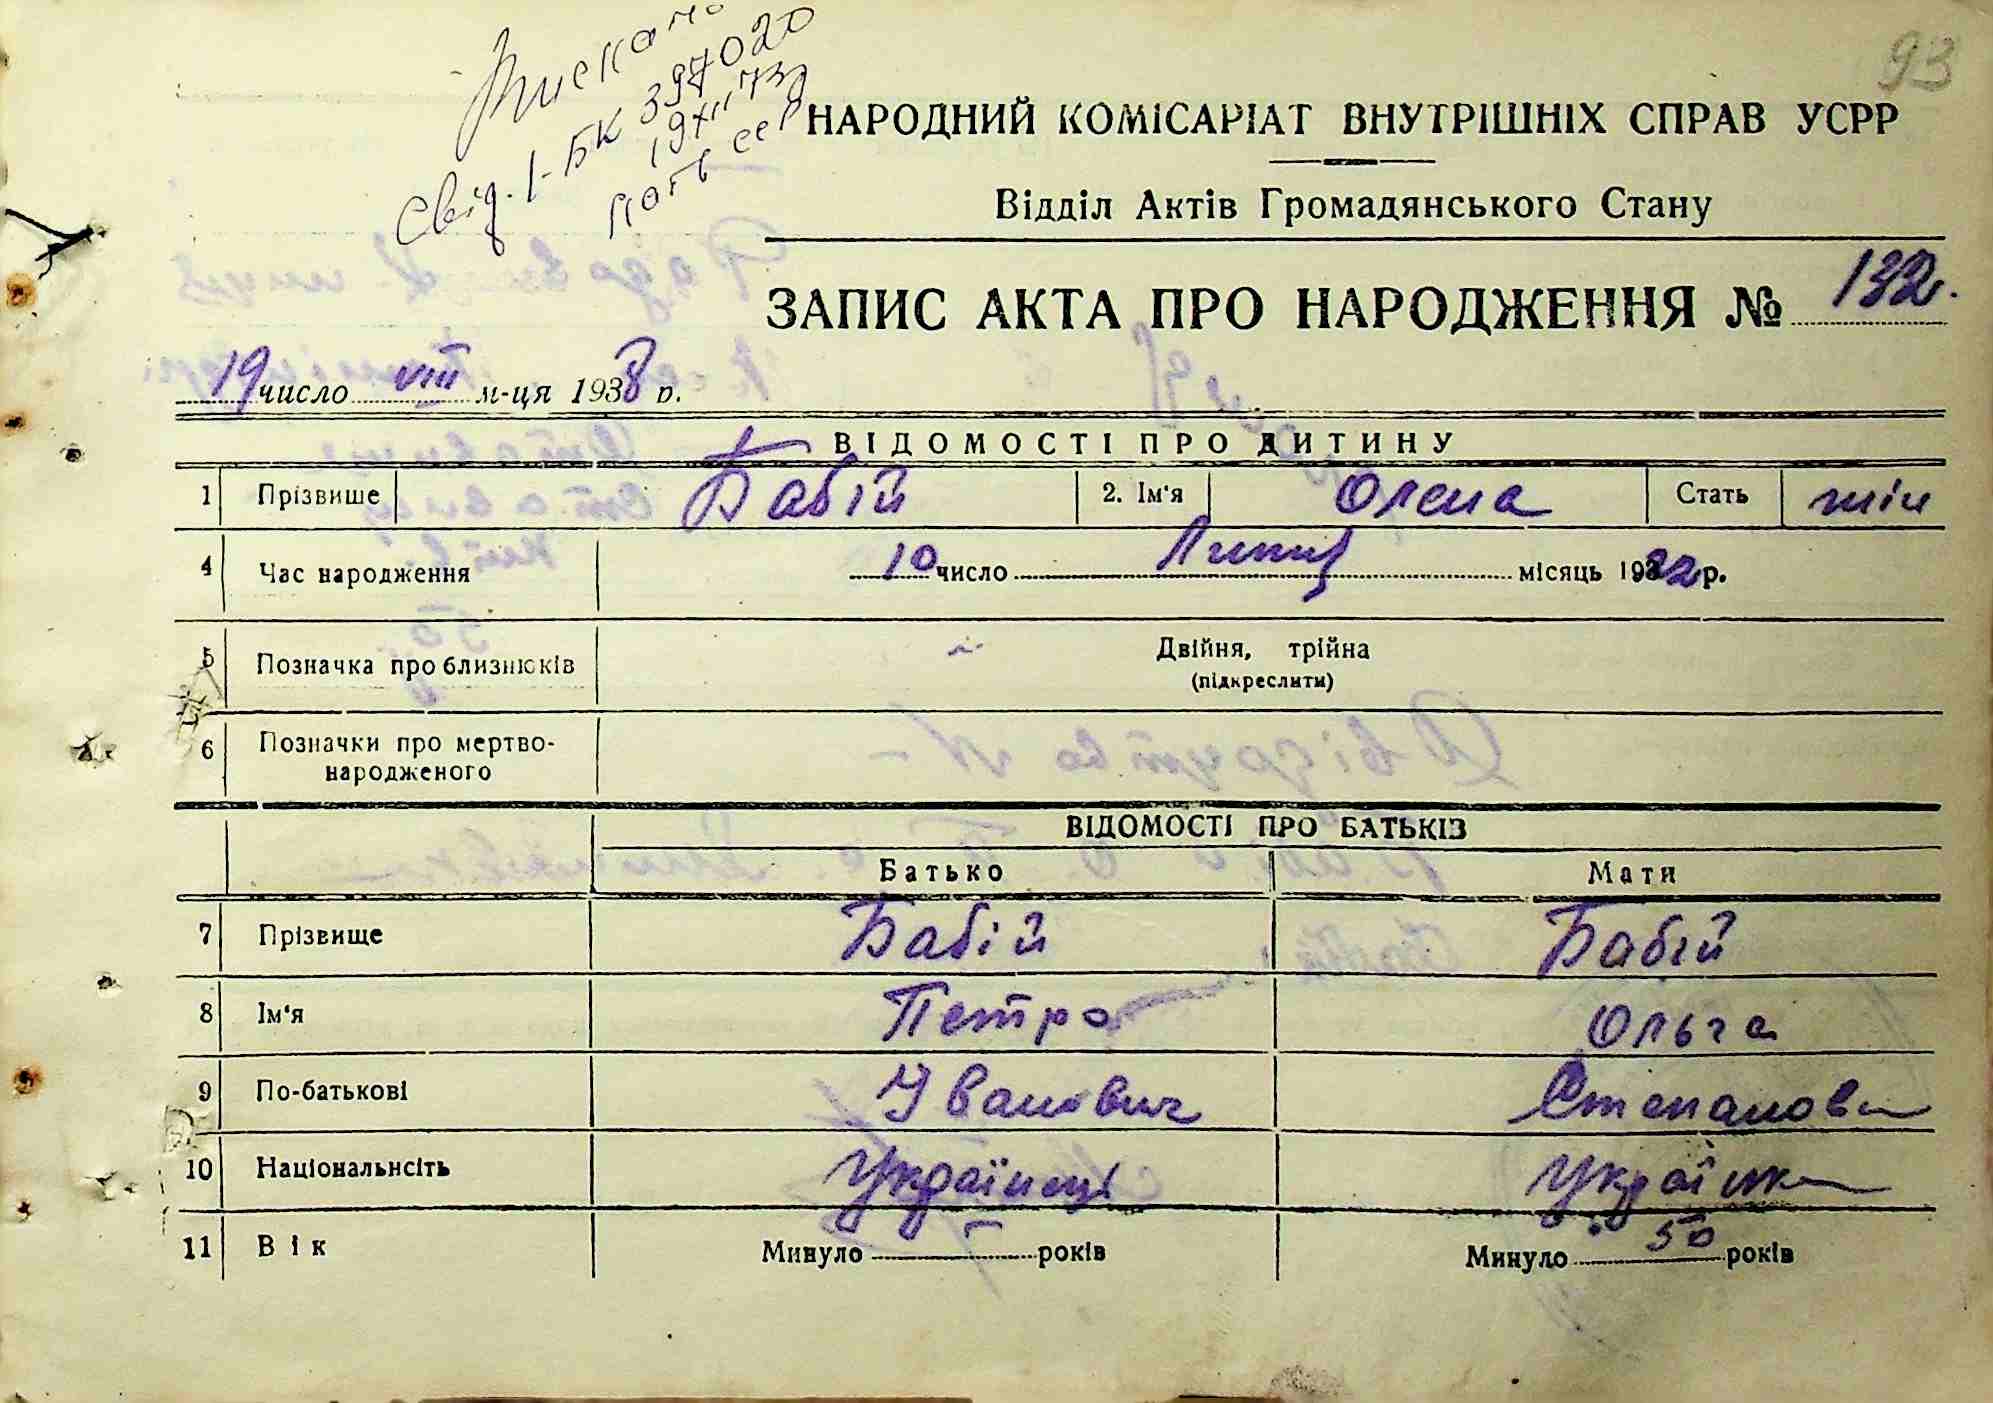 93
Свід. І-БК 397020
19 XII 73
НАРОДНИЙ КОМІСАРІАТ ВНУТРІШНІХ СПРАВ УСРР
Відділ Актів Громадянського Стану
ЗАПИС АКТА ПРО НАРОДЖЕННЯ № 132.
19 число VIII м-ця 1938 р.
ВІДОМОСТІ ПРО ДИТИНУ
1 Прізвише Бабій 2. Ім'я Олена Стать жін
4 Час народження 10 число Липня місяць 1922 р.
5 Позначка про близнюків Двійня, трійна
(підкреслити)
6 Позначки про мертво-
народженого
ВІДОМОСТІ ПРО БАТЬКІВ
Батько Мати
7 Прізвище Бабій Бабій
8 Ім'я Петро Ольга
9 По-батькові Іванович Степанова
10 Національнсіть Українець Українка
11 Вік Минуло — років Минуло 50 років